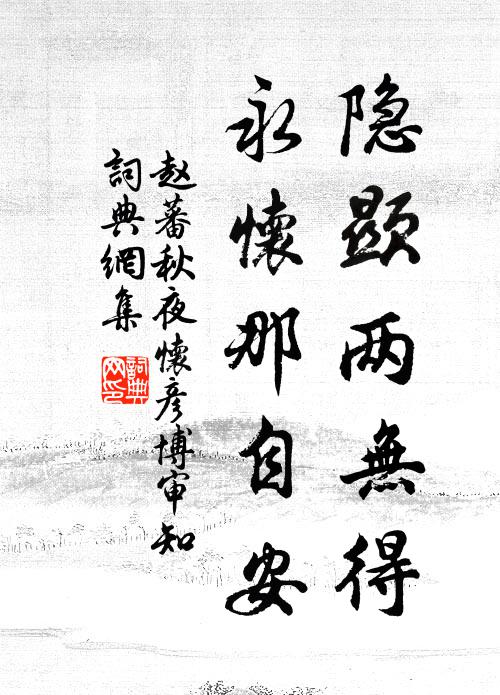 隐顕两無得
永懷那自安
赵蕃秋夜懷彦博审知
詞典網集
詞典
网印